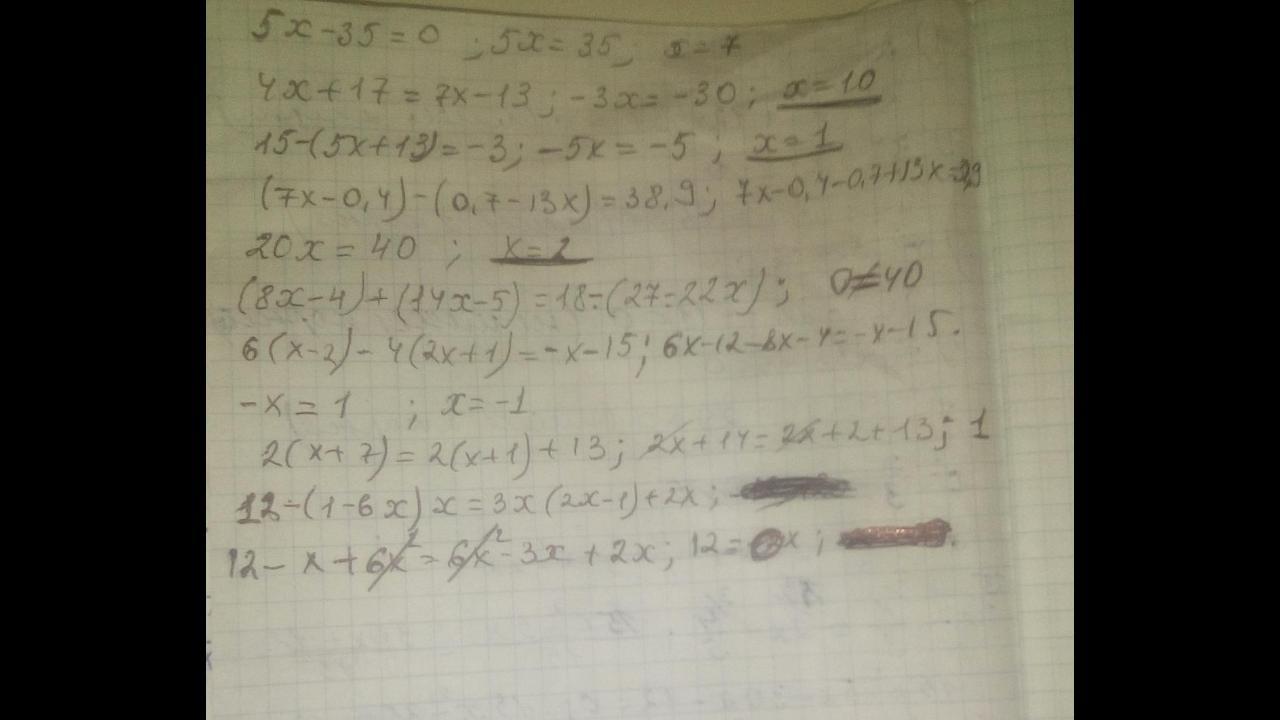 5x-35=0 ; 5x=35; x=7
4x+17=7x-13; -3x=-30; x=10
15-(5x+13)=-3; -5x=-5 ; x=1
(7x-0,4)-(0,7-13x)=38,9; 7x-0,4-0,7+13x=
20x=40 ; x=2
(8x-4)+(14x-5)=18-(27-22x); 0≠40
6(x-2)-4(2x+1)=-x-15; 6x-12-8x-4=-x-15.
-x=1 ; x=-1
2(x+7)=2(x+1)+13; 2x+14=2x+2+13; 1
12-(1-6x)x=3x(2x-1)+2x;
12-x+6x²=6x²-3x+2x; 12= x;